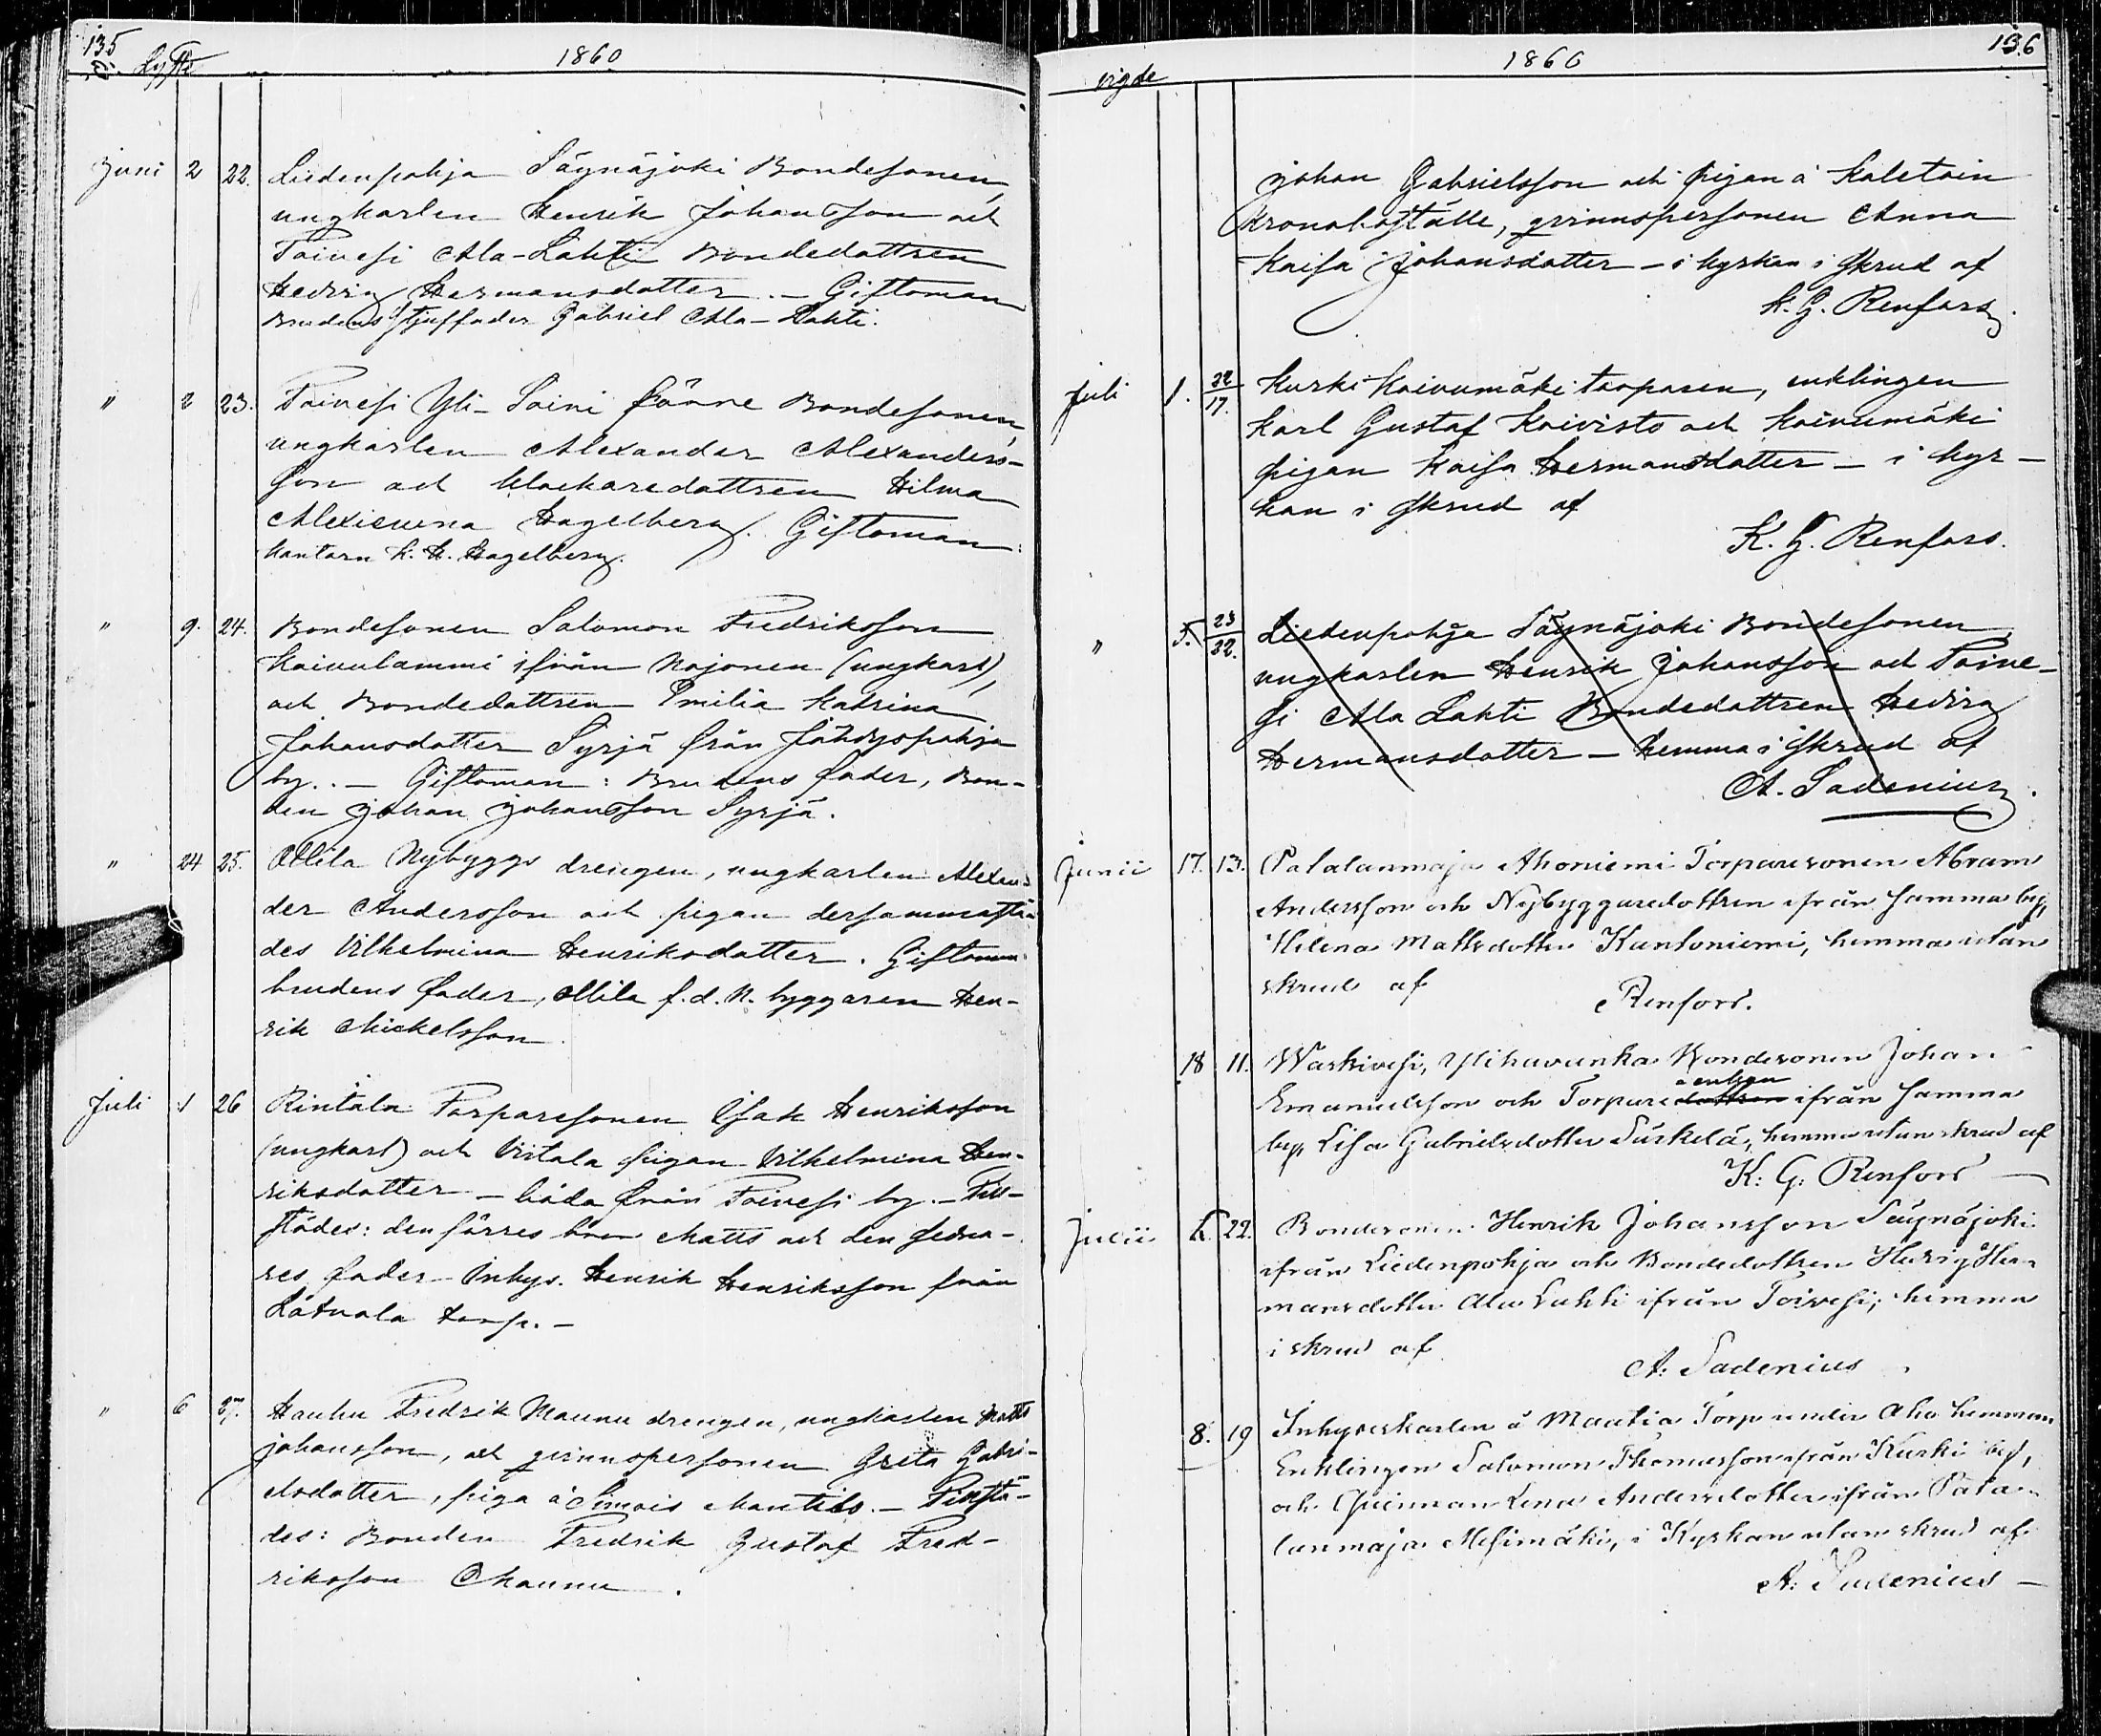 135
1860
Lyste
Juni 2 22. Liedenpohja Säynäjoki Bondesonen,
ungkarlen Henrik Johansson och
Toivesi Ala-Lahti Bondedottren
Hedvig Hermansdotter. – Giftoman
Brudens styffader Gabriel Ala-Lahti.
" 2 23. Toivesi Yli-Soini Bondesonen,
ungkarlen Alexander Alexanders-
son och klockaredottren Hilma
Hagelberg. Giftoman:
kantorn K. H. Hagelberg.
" 9. 24. Bondesonen Salomon Fredriksson
Koivulammi ifrån (ungkarl),
och Bondedottren Emilia Katrina
Johansdotter Syrjä från Jähdyspohja
by. – Giftoman: Brudens fader, Bon-
den Johan Johansson Syrjä.
" 24 25. Ollila Nybyggs drengen, ungkarlen Alexan-
der Andersson och pigan dersammastä-
des Vilhelmina Henriksdotter. Giftoman
brudens fader, Ollila f.d. N. byggaren Hen-
rik Mickelsson.
Juli 1 26 Rintala Torparesonen Isak Henriksson
(ungkarl) och Vistala pigan Vilhelmina Hen-
riksdotter – båda från Toivesi by. – Till-
städes: den förres bror Matts och den sedna-
res fader Inhys. Henrik Henriksson från
Torp. –
" 6 27. Hauhu Fredrik Maunu drengen, ungkarlen Matts
Johansson, och qvinnspersonen Greta Gabri-
elsdotter, piga å Mantila. – Tillstä-
des: Bonden Fredrik Gustaf Fred-
riksson Maunu.
136
1860
vigde
Johan Gabrielsson och pigan å Kaletoin
Kronoboställe, qvinnspersonen Anna
Kaisa Johansdotter – i kyrkan i skrud af
K. G. Renfors.
Juli 1. 22/17. Kurki Koivumäki torparen, enklingen
Karl Gustaf Koivisto och Koivumäki
pigan Kaisa Hermansdotter – i kyr-
kan i skrud af
K. G. Renfors.
" 5. 23/22. Liedenpohja Säynäjoki Bondesonen,
ungkarlen Henrik Johansson och Toive-
si Ala Lahti Bondedottren Hedvig
Hermansdotter – hemma i skrud af
A. Sadenius.
Junii 17. 13. Patalanmaja Ahoniemi Torparesonen Abram
Andersson och Nybyggaredottren ifrån samma by,
Helena Mattsdotter Kantoniemi, hemma utan
skrud af
Renfors.
18 11. Waskivesi, Ylihuvunka Bondesonen Johan
Emanuelsson och Torpare enkan ifrån samma
by, Lisa Gabrielsdotter Särkelä, hemma utan skrud af
K: G: Renfors
Julii 5. 22. Bondesonen Henrik Johansson Säynäjoki
ifrån Liedenpohja och Bondedottren Hedvig Her-
mansdotter Ala Lahti ifrån Toivesi, hemma
i skrud af
A: Sadenius
8. 19 Inhyseskarlen å Maatia Torp under Aho hemman
Enklingen Salomon Thomasson ifrån Kurki by,
och Qvinnan Lena Andersdotter ifrån Pata-
lanmaja Mesimäki, i Kyrkan utan skrud af
A: Sadenius –